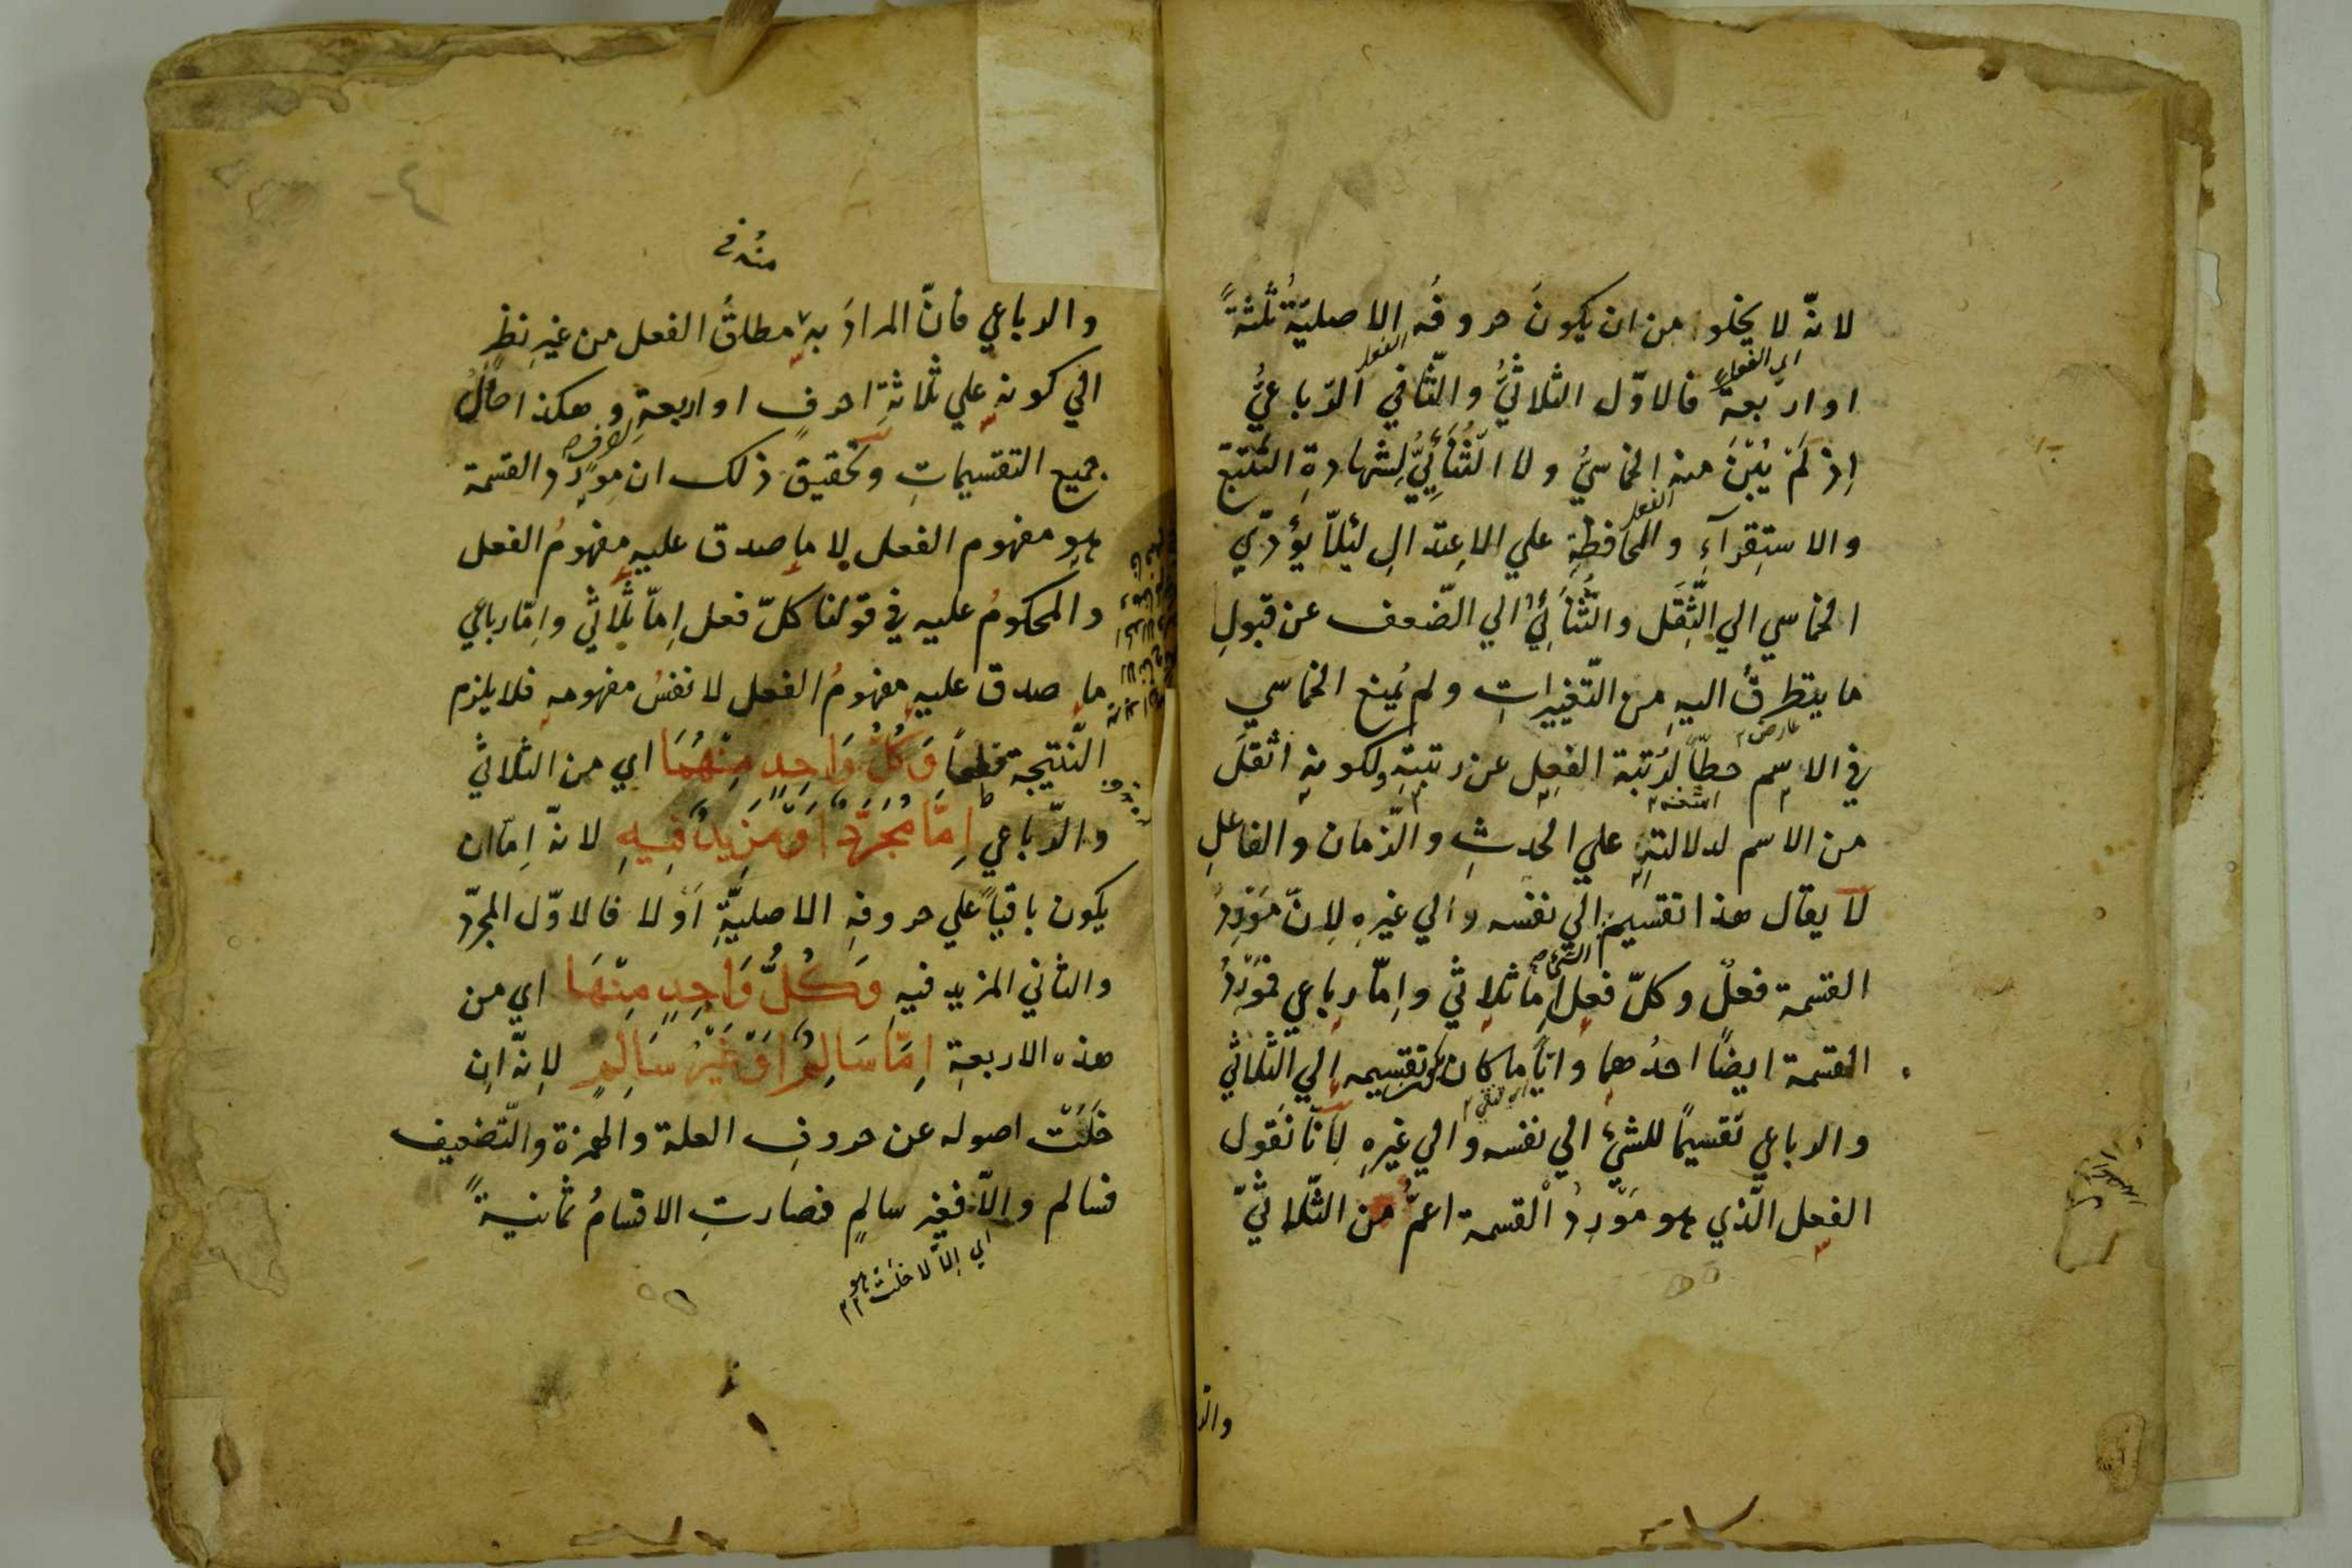 لانّه لا يخلو من ان يكونَ حروفُه الاصليّةُ ثلثةً
اى الفعل
الفعل
او اربعة فالاوّل الثلاثيُّ والثّاني الرّباعيُّ
اِذ لَمْ يُبْنَ منه الخماسيُّ ولا الثُّنَائِيُّ لِشهادةِ التّتبّع
الفعل
والاستِقرآءِ والمحافظةِ علي الاعتدالِ لئلّا يؤدّي
الخماسي الي الثِّقَل والثُّنَائِيُّ الي الضّعف عن قبولِ
ما يتطرقُ اليهِ من التّغييراتِ ولم يُمنع الخماسي
عارض
في الاسم حطّاً لرُتبة الفعِل عن رتبتهِ ولكونهِ اثقلَ
من الاسم لدلالتهِ علي الحدثِ والزّمان والفاعلِ
لا يقال هذا تقسيم الي نفسه والي غيرهِ لانّ مَوْرِدُ
الشئ
القسمة فعلٌ وكلّ فعِل اِمّا ثلاثي واِمّا رباعي فمَوْرِدُ
القسمة ايضًا احدُهما وايّاً ما كان يكون تقسيمه الي الثّلاثي
والرباعي تقسيمًا للشئِ الي نفسه والي غيرهِ لِانّا نَقول
الفعِل الّذي هو مَوْرِدُ القسمة اعمُّ من الثّلاثيّ
والر
والرباعي فانّ المرادَ بهِ مطلقُ الفعل من غيرِ نظرٍ
الي كونهِ علي ثلاثةِ احرفٍ او اربعةٍ وهكذا حالُ
جميع التقسيماتِ وتحقيق ذلك ان مورِد القسمة
هو مفهوم الفعل لا ما صدق عليهِ مفهومُ الفعل
والمحكومُ عليه في قولنا كلّ فعل اِمّا ثلاثي واِمّا رباعي
ما صدق عليهِ مفهومُ الفعل لا نفسُ مفهومهِ فلا يلزم
النّتيجة قطعاً وَكُلُّ وَاحِدٍ مِنْهُمَا اي من الثلاثي
والرّباعي اِمَّا مُجَرَّدٌ اَوْ مَزِيدٌ فِيهِ لانّه اِمّا ان
يكون باقياً علي حروفهِ الاصليّةِ اَوْ لا فالاوّل المجرّد
والثاني المزيد فيهِ وَكُلُّ وَاحِدٍ مِنْهَا اي من
هذه الاربعةِ اِمَّا سَالِمٌ اَوْ غَيْرُ سَالِمٍ لانّه ان
خَلَتْ اصوله عن حروفِ العلة والهمزة والتّضعيف
فسالم والّا فغير سالمٍ فصارتِ الاقسامُ ثمانيةً
اي اِلّا لا خلت هو